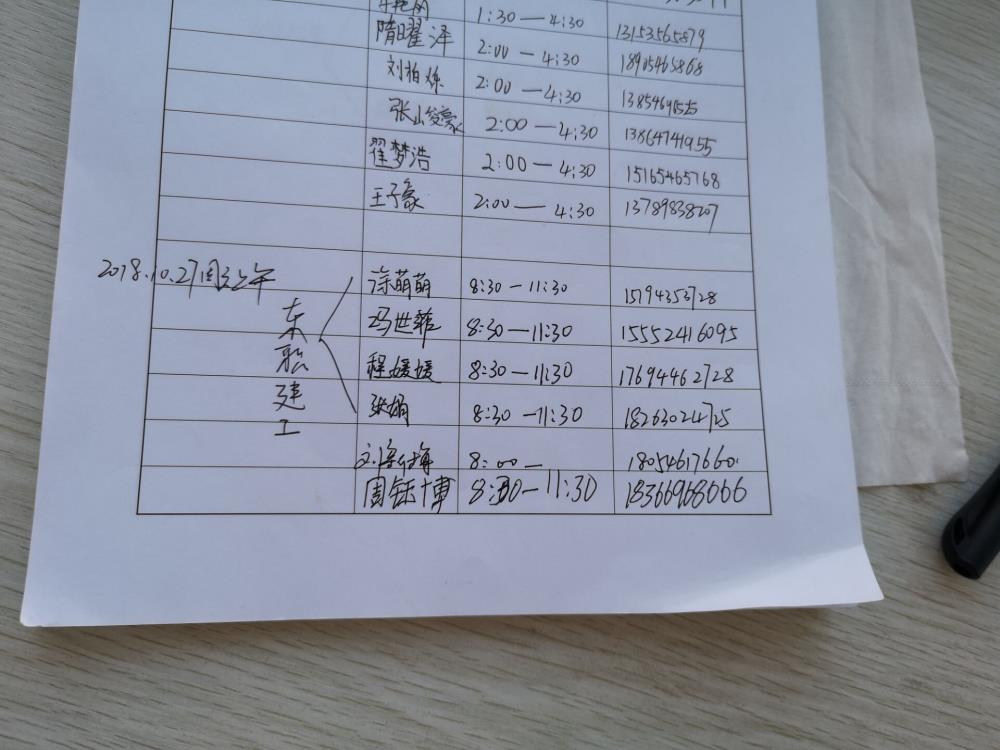 1:30—4:30 13153565879
隋曜泽 2:00—4:30 18905465868
刘柏烁 2:00—4:30
张峻豪 2:00—4:30 13864741955
翟梦浩 2:00—4:30 15165465768
王子豪 2:00—4:30 13789838207
2018.10.27周六上午 涂萌萌 8:30—11:30
冯世菲 8:30—11:30 15552416095
程媛媛 8:30—11:30 17694462728
张娟 8:30—11:30 18263024725
东职建工
8:00— 18054617660
周钰博 8:30—11:30 18366968066